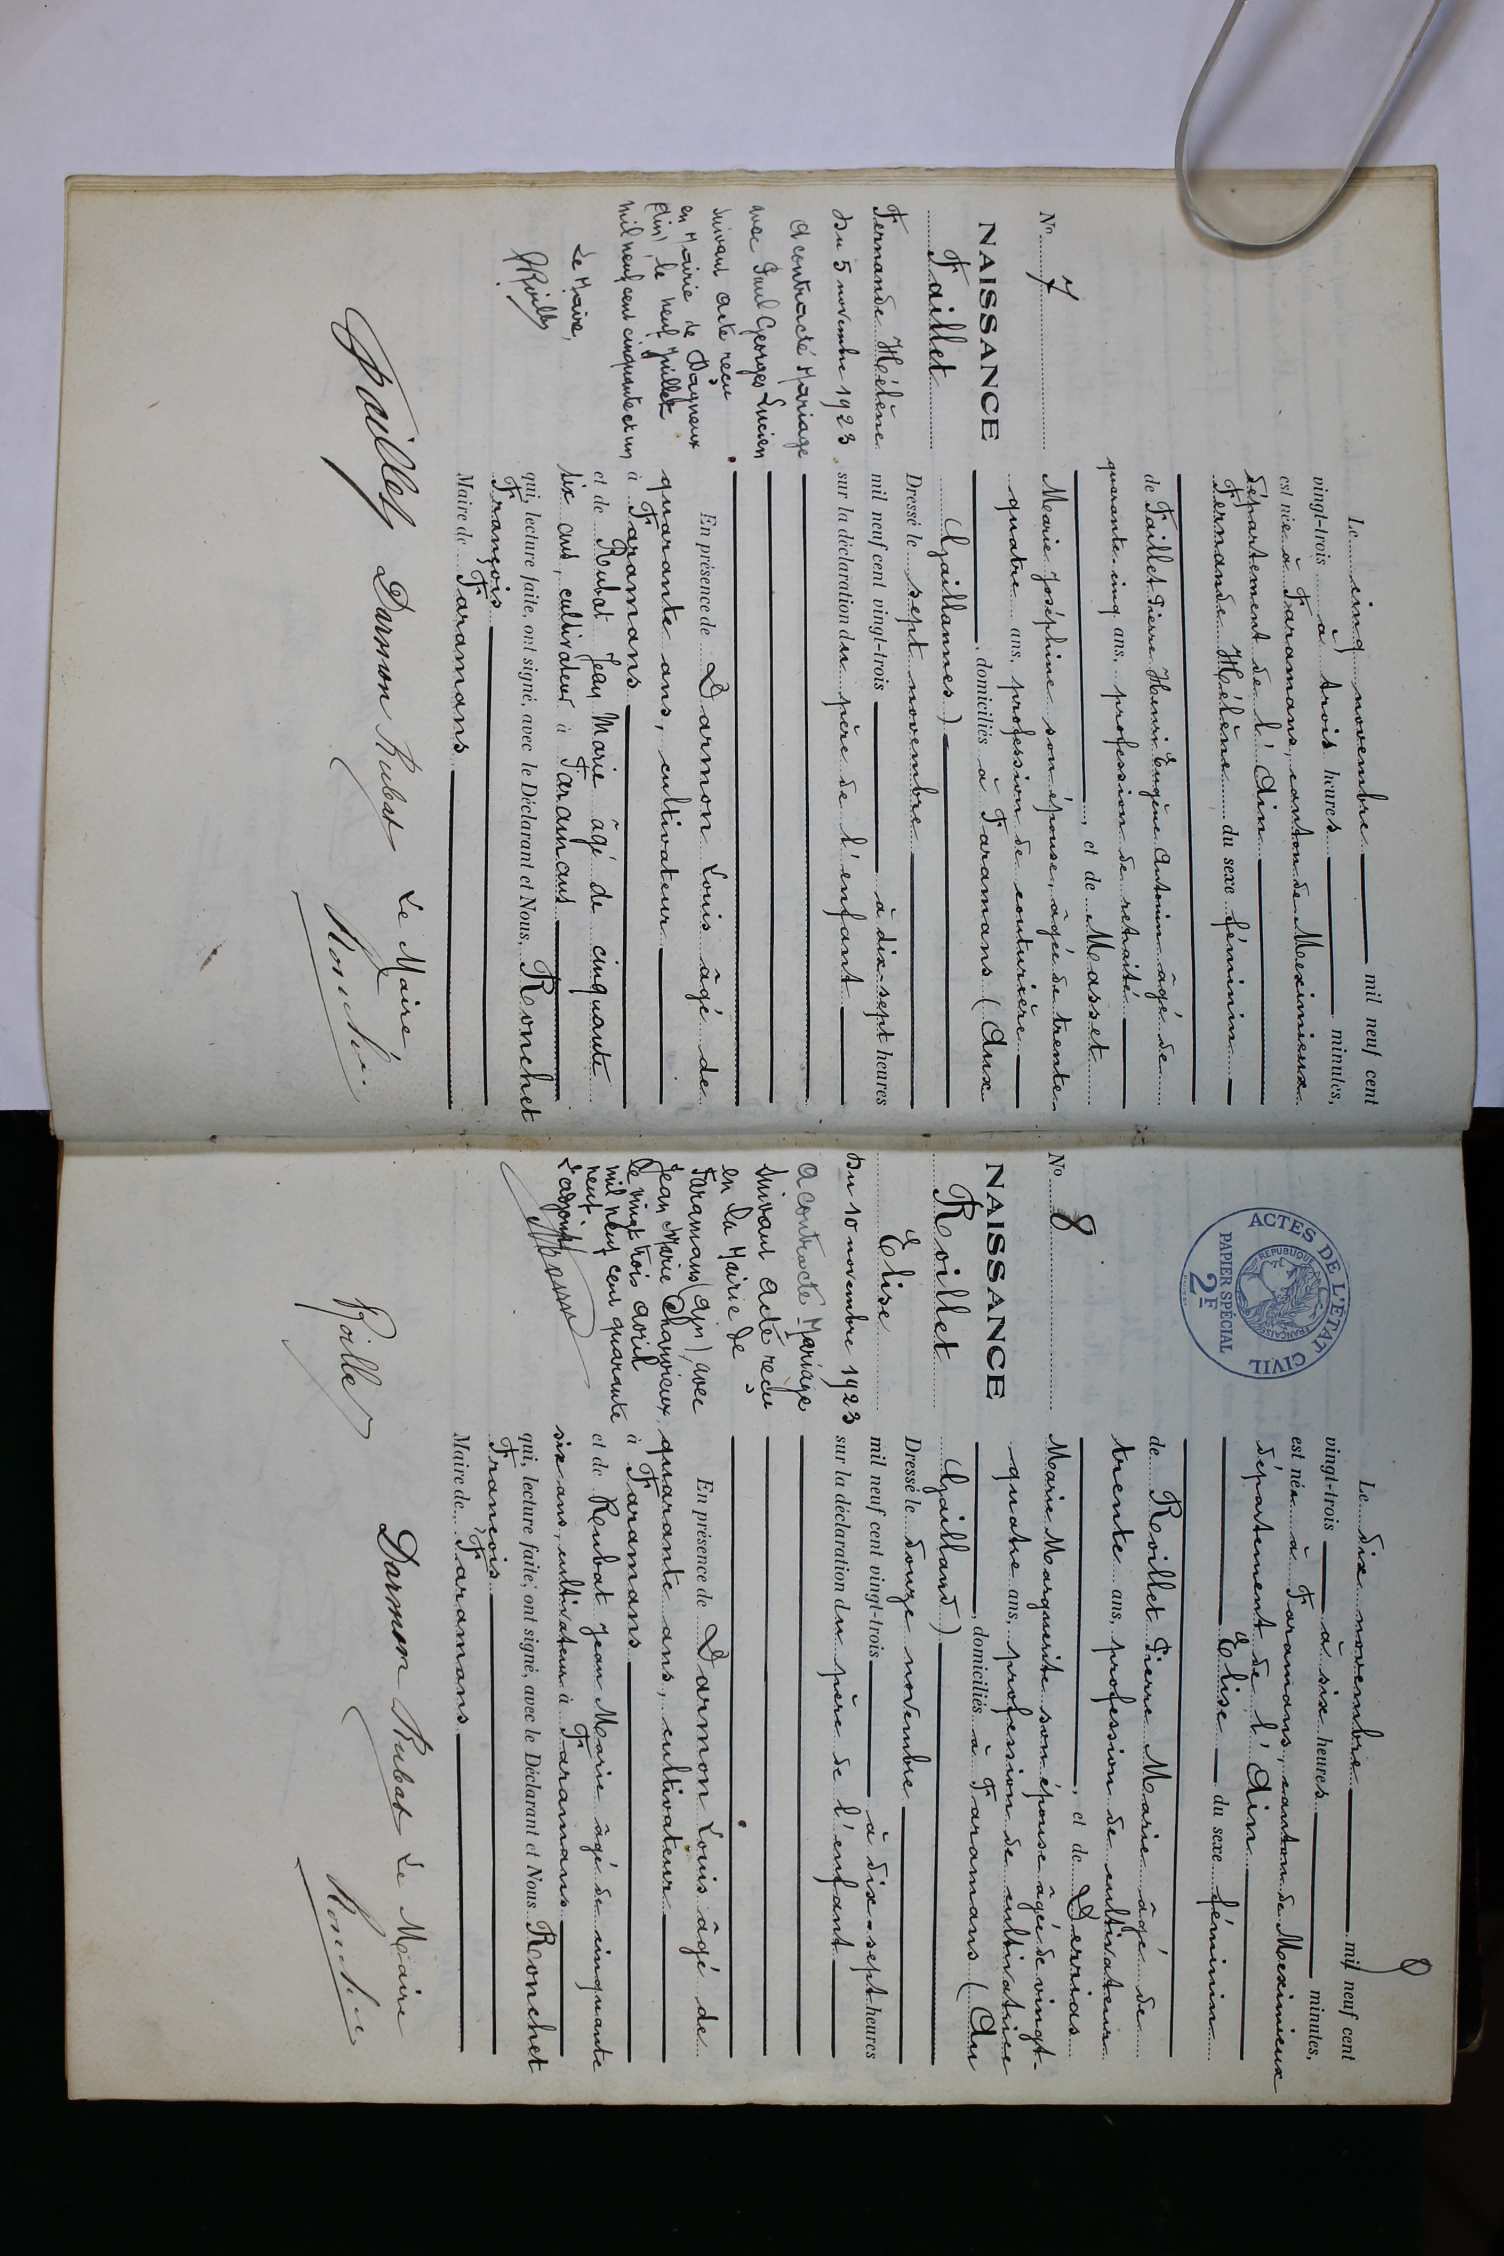 Nº 7
NAISSANCE
Faillet
Fernande Hélène
Du 5 novembre 1923
A contracté Mariage
avec Paul Georges Lucien
suivant acte reçu
en Mairie de Dagneux
(Ain), le neuf Juillet
mil neuf cent cinquante et un
Le Maire,
Le cinq novembre mil neuf cent
vingt-trois à trois heures minutes,
est née à Faramans, canton de Meximieux
département de l'Ain
Fernande Hélène du sexe féminin
de Faillet Pierre Henri Eugène Antonin âgé de
quarante-cinq ans, profession de retraité
, et de Masset
Marie Joséphine son épouse, âgée de trente-
quatre ans, profession de couturière
, domiciliés à Faramans (Aux
Gaillannes)
Dressé le sept novembre
mil neuf cent vingt-trois à dix-sept heures
sur la déclaration du père de l'enfant
En présence de Darmon Louis âgé de
quarante ans, cultivateur
à Faramans
et de Rubat Jean Marie âgé de cinquante
six ans, cultivateur à Faramans
qui, lecture faite, ont signé, avec le Déclarant et Nous, Ronchet
François
Maire de Faramans
Faillet Darmon Rubat Le Maire
Ronchet
8
ACTES DE L'ÉTAT CIVIL
RÉPUBLIQUE FRANÇAISE
PAPIER SPÉCIAL
2F
Nº 8
NAISSANCE
Roillet
Elise
Du 10 novembre 1923
A contracté Mariage
suivant acte reçu
en la Mairie de
Faramans (Ain), avec
Jean Marie Chanvieux,
le vingt trois avril
mil neuf cent quarante
neuf
L'adjoint
Le dix novembre mil neuf cent
vingt-trois à six heures minutes,
est née à Faramans, canton de Meximieux
département de l'Ain
Elise du sexe féminin
de Roillet Pierre Marie âgé de
trente ans, profession de cultivateur
, et de Derrias
Marie Marguerite son épouse âgée de vingt-
quatre ans, profession de cultivatrice
, domiciliés à Faramans (Au
Gailland)
Dressé le douze novembre
mil neuf cent vingt-trois à dix-sept heures
sur la déclaration du père de l'enfant
En présence de Darmon Louis âgé de
quarante ans, cultivateur
à Faramans
et de Rubat Jean Marie âgé de cinquante
six ans, cultivateur à Faramans
qui, lecture faite, ont signé, avec le Déclarant et Nous Ronchet
François
Maire de Faramans
Roillet Darmon Rubat Le Maire
Ronchet